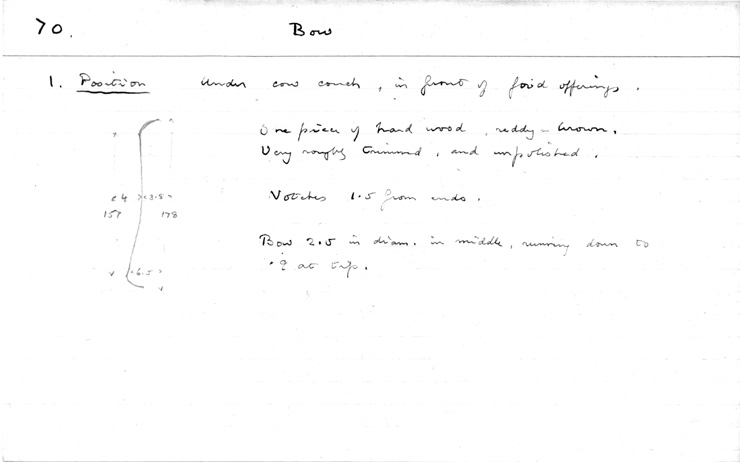 70.
Bow
1. Position under cow couch, in front of food offerings.
One piece of hard wood, reddy-brown.
Very roughly trimmed, and unpolished.
Notches 1.5 from ends.
Bow 2.5 in diam. in middle, running down to
.9 at tip.
4 3.8
157 178
6.5